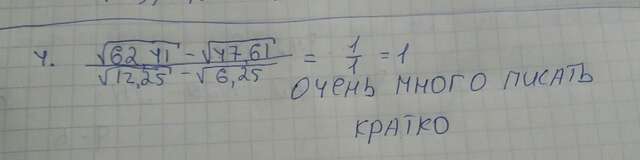 4. √62,41 - √47,61 / √12,25 - √6,25 = 1/1 = 1
ОЧЕНЬ МНОГО ПИСАТЬ
КРАТКО